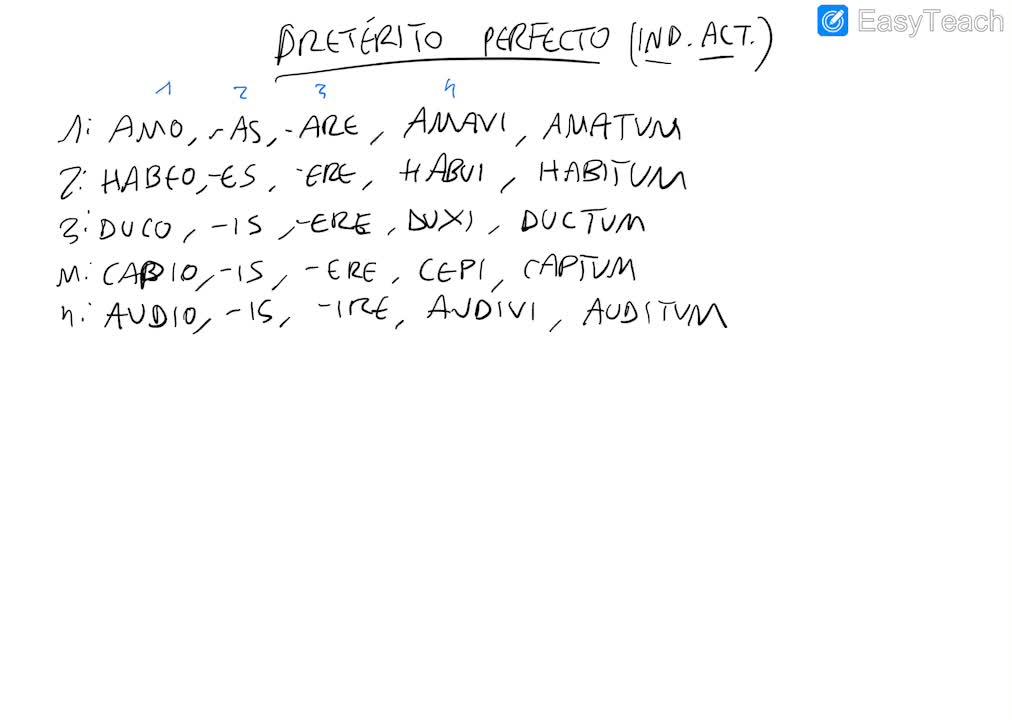 EasyTeach
PRETÉRITO PERFECTO (IND. ACT.)
1 2 3 4
1: AMO, -AS, -ARE, AMAVI, AMATUM
2: HABEO, -ES, -ERE, HABUI, HABITUM
3: DUCO, -IS, -ERE, DUXI, DUCTUM
M: CAPIO, -IS, -ERE, CEPI, CAPTUM
4: AUDIO, -IS, -IRE, AUDIVI, AUDITUM